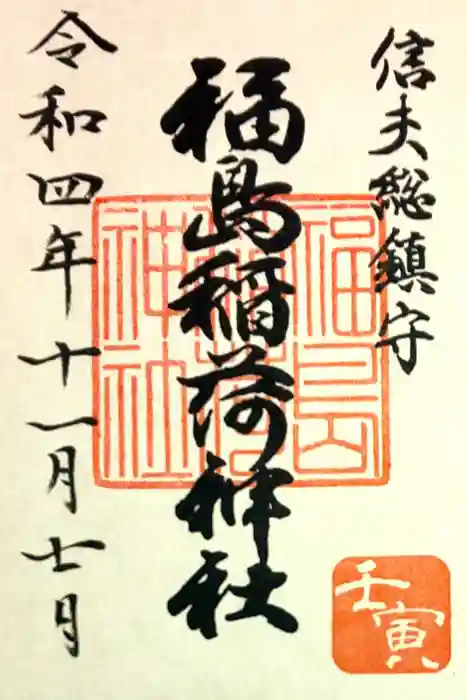 信夫総鎮守
福島稲荷神社
令和四年十一月七日
福島稲荷神社
壬寅